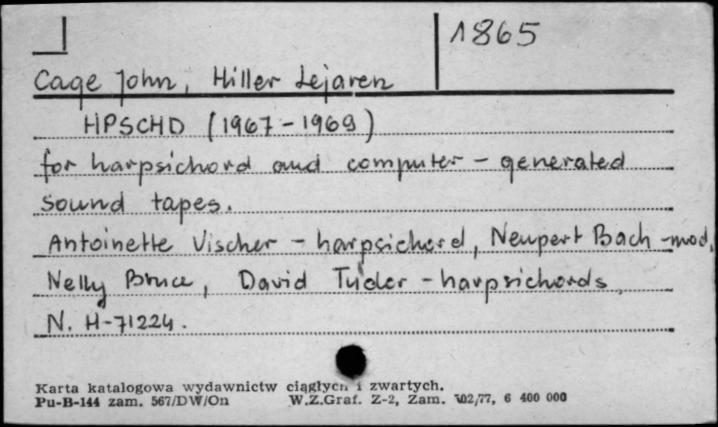 1865
Cage John, Hiller Lejaren
HPSCHD (1967-1969)
for harpsichord and computer - generated
sound tapes.
Antoinette Vischer - harpsichord, Neupert Bach-mod,
Nelly Bruce, David Tudor - harpsichords,
N. H-71224.
Karta katalogowa wydawnictw ciągłych i zwartych.
Pu-B-144 zam. 567/DW/On W.Z.Graf. Z-2, Zam. 302/77, 6 400 000